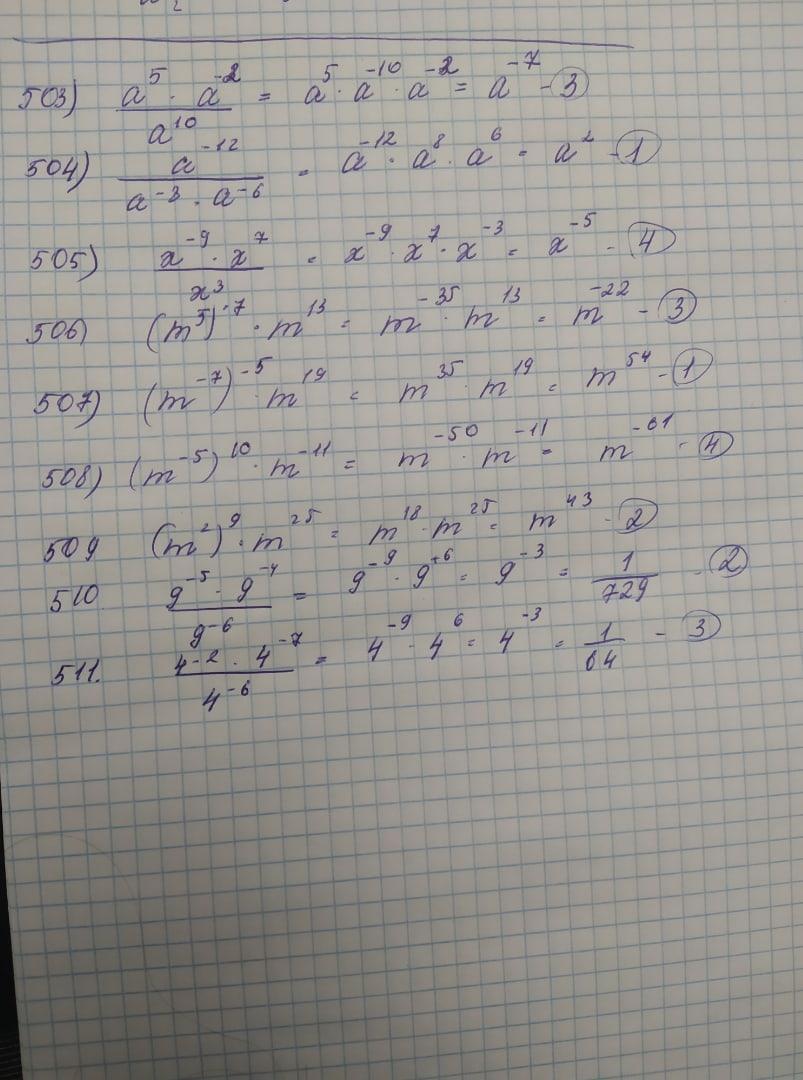 503) \frac{a^5 · a^{-2}}{a^{10}} = a^5 · a^{-10} · a^{-2} = a^{-7} - ③
504) \frac{a^{-12}}{a^{-3} · a^{-6}} = a^{-12} · a^8 · a^6 = a^2 - ①
505) \frac{x^{-9} · x^7}{x^3} = x^{-9} · x^7 · x^{-3} = x^{-5} - ④
506) (m^5)^{-7} · m^{13} = m^{-35} · m^{13} = m^{-22} - ③
507) (m^{-7})^{-5} · m^{19} = m^{35} · m^{19} = m^{54} - ①
508) (m^{-5})^{10} · m^{-11} = m^{-50} · m^{-11} = m^{-61} - ④
509 (m^2)^9 · m^{25} = m^{18} · m^{25} = m^{43} - ②
510 \frac{9^{-5} · 9^{-4}}{9^{-6}} = 9^{-9} · 9^{+6} = 9^{-3} = \frac{1}{729} - ②
511. \frac{4^{-2} · 4^{-7}}{4^{-6}} = 4^{-9} · 4^6 = 4^{-3} = \frac{1}{64} - ③